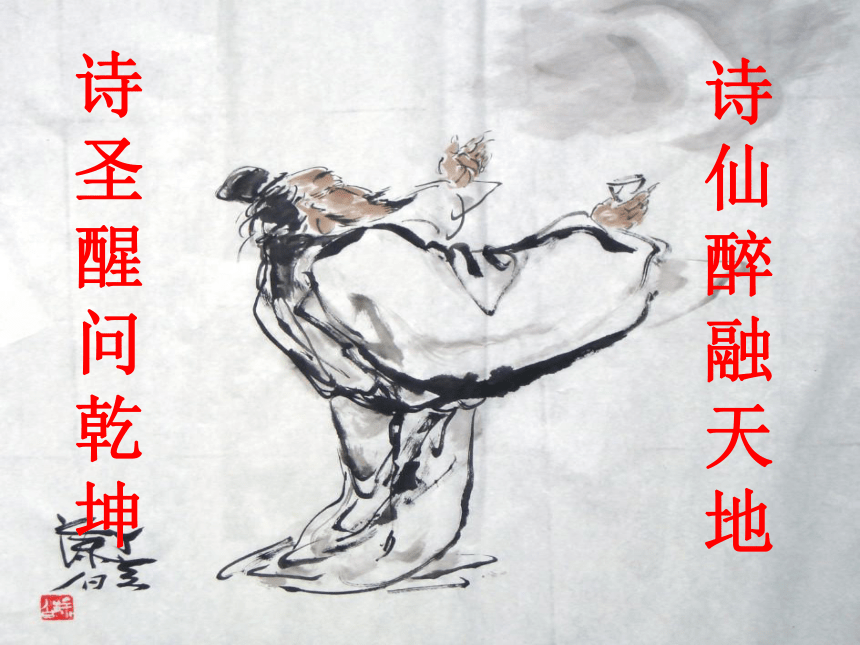 诗仙醉融天地
诗圣醒问乾坤